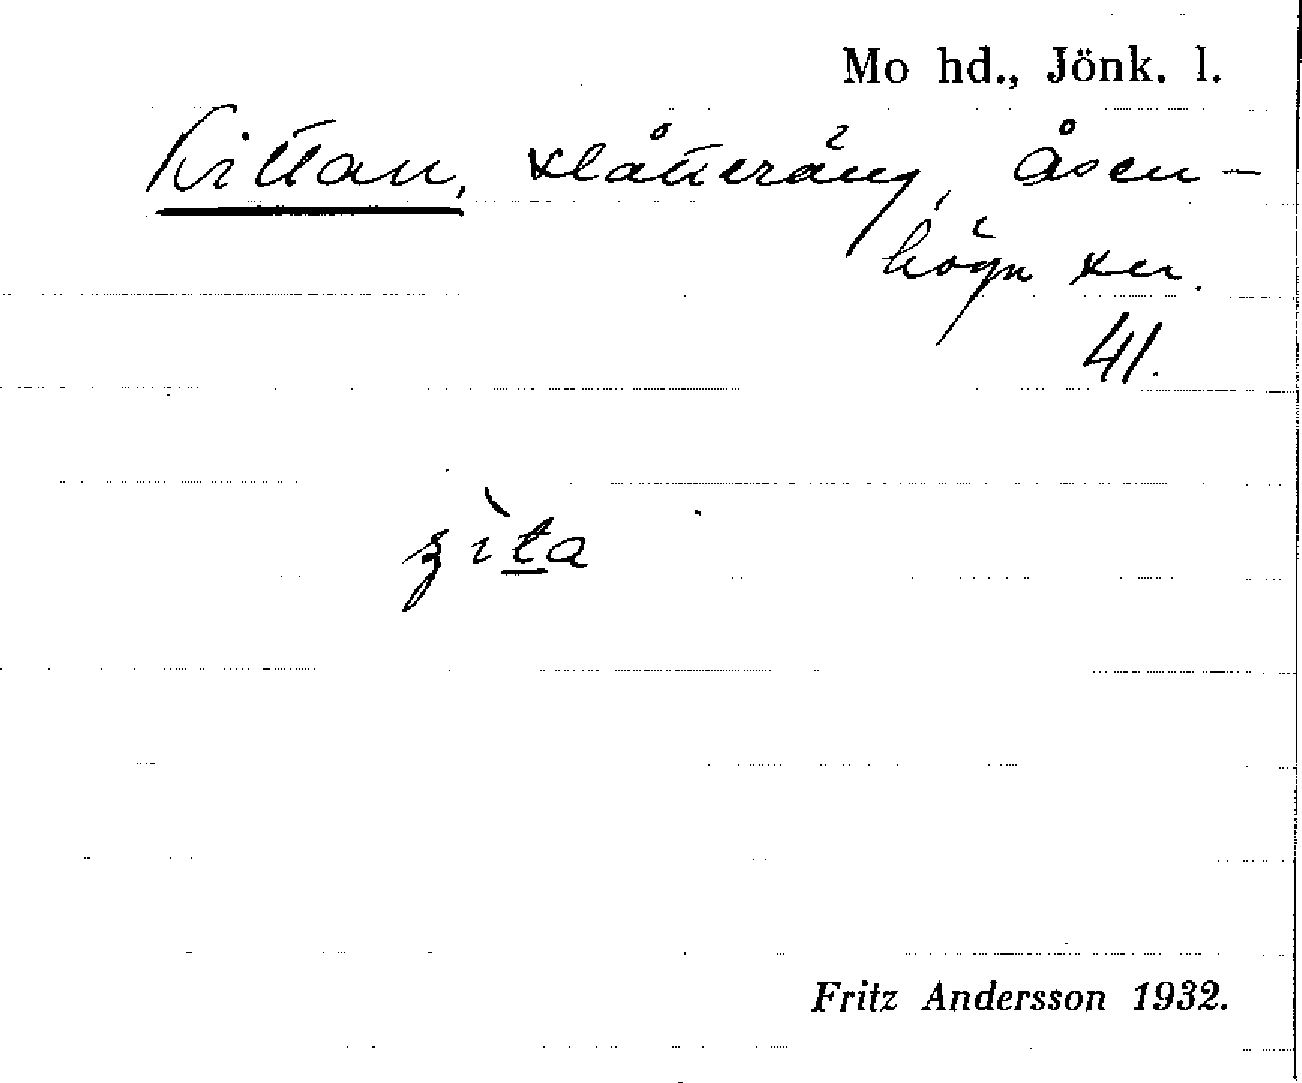 Mo hd., Jönk. l.
Kittan, slåtteräng, Åsen-
högn ser.
41.
Fritz Andersson 1932.